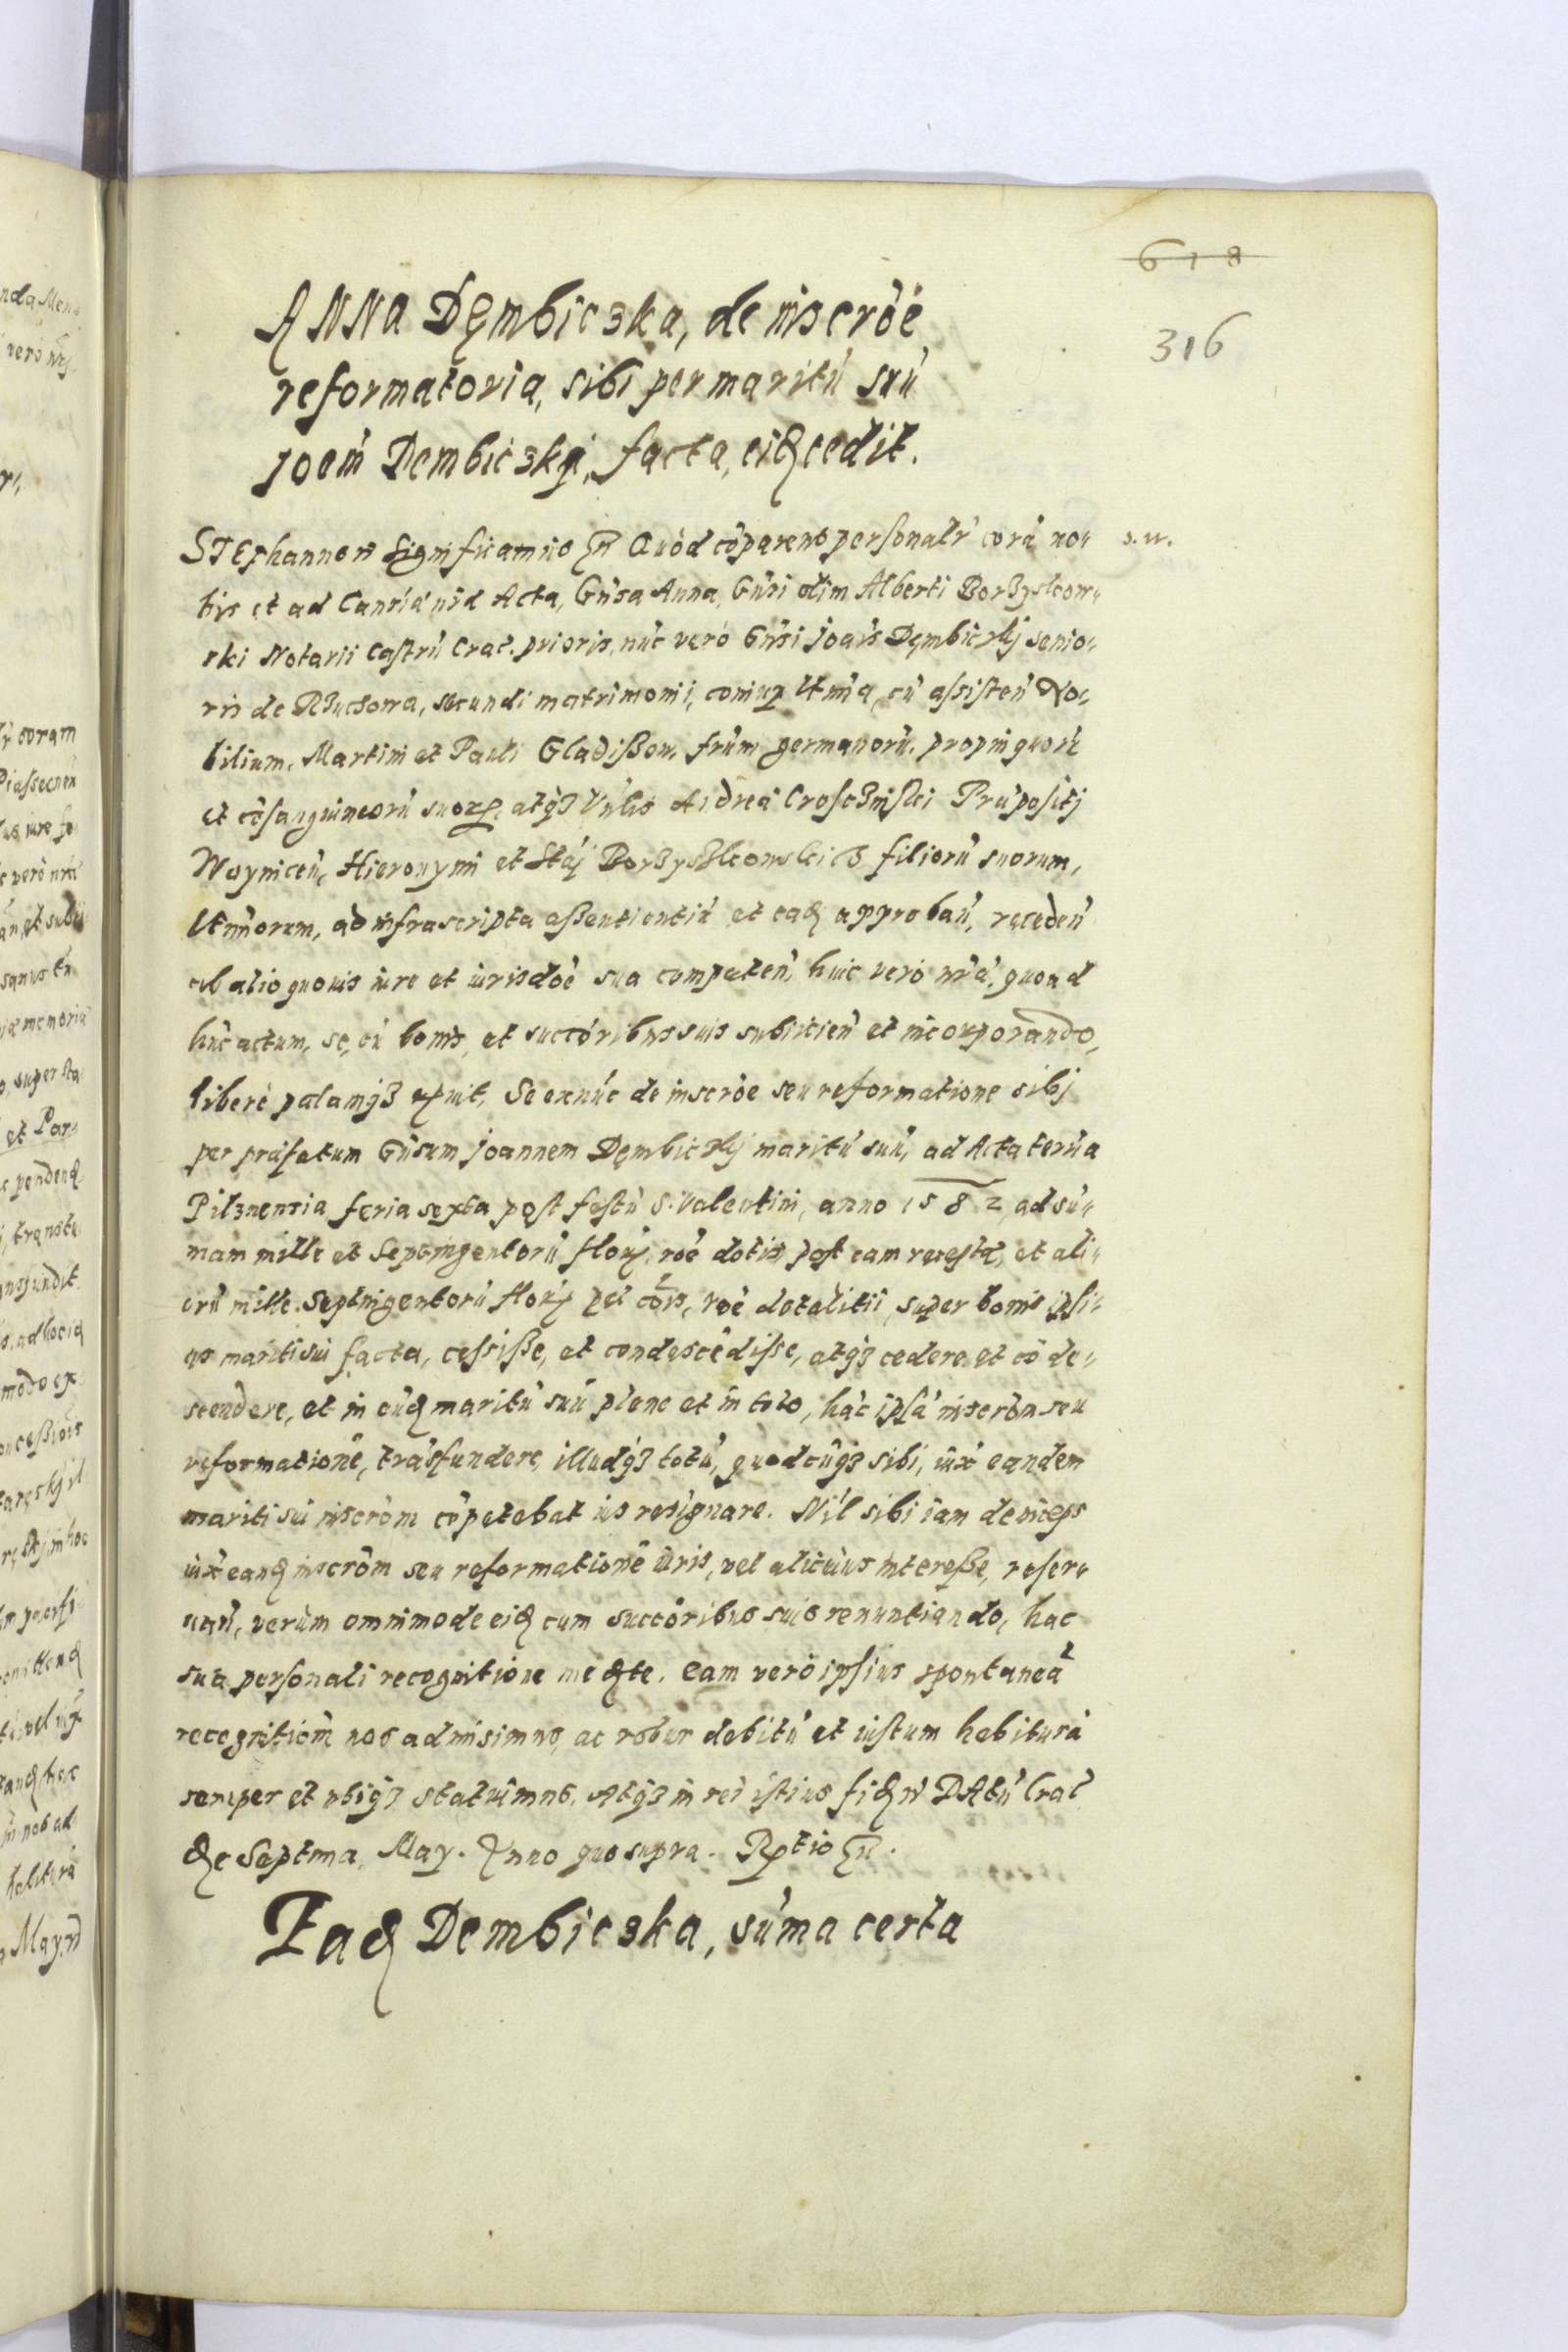 618
316
ANNA Dęmbiczka, de inscrōe
reformatoria, sibi per maritū suū
Joem̄ Dembiczkij, facta, eiđ cedit.
STEphannus Significamus Quòd cōparens personalr̄ corā no- s. w.
bis et ad Canr̄iā nr̄ā Acta, Gn̄sa Anna, Gn̄si olim Alberti Borzyskow-
ski Notarii Castrn̄ Crac. prioris, nūc vero Gn̄si Joañis Dęmbiczkij senio-
ris de secundi matrimonii, coniux ltīma, cū assisteñ No-
bilium, Martini et Pauli Gladißow, frūm germanorū, propinquorū
et cōsanguineorū suorum, atq3 Vn̄lis Andreā Prępositj
Woyniceñ, Hieronymi et Stāj filiorū suorum,
ltīmorum, ad infrascripta aßentientiū et eađ approbañ, recedeñ
ab alio quouis iure et iurisdōe sua competeñ, huic vero nr̄ā, quoad
hūc actum, se, cū bonis, et succōribus suis subiicieñ et incorporando,
liberè palamq3 Se exnūc de inscrōe seu reformatione sibj
per prāfatum Gn̄sum Joannem Dęmbiczkij maritū suū, ad Acta ter̄na
Pilznensia feria sexta post festū S. Valentini, anno 1582, ad sū-
mam mille et Septingentorū flor, rōe dotis post eam receptæ, et ali-
orū mille Septingentorū flor rōe dotalitii, super bonis ipsi-
us mariti sui facta, cessiße, et condescēdisse, atq3 cedere et cōde-
scendere, et in eūđ maritū suū plene et in toto, hāc ipsā inscrōm seu
reformationē, trāsfundere, illudq3 totū, quodcūq3 sibi, iux̄ eandem
mariti sui inscrōm cōpetebat ius resignare. Nīl sibi iam deinceps
iux̄ eanđ inscrōm seu reformationē iuris, vel alicuius intereße, reser-
uañ, verùm omnimode eiđ cum succōribus suis renuntiando, hac
sua personali recognitione medte. Eam vero ipsius spontaneā
recognitiōm nos admisimus, ac robur debitū et iustum habiturā
semper et vbiq3 statuimus. Atq3 in rei istius fiđ DAtū Crac
die Septima May. Anno quo supra.
Eađ Dembiczka, sūma certa